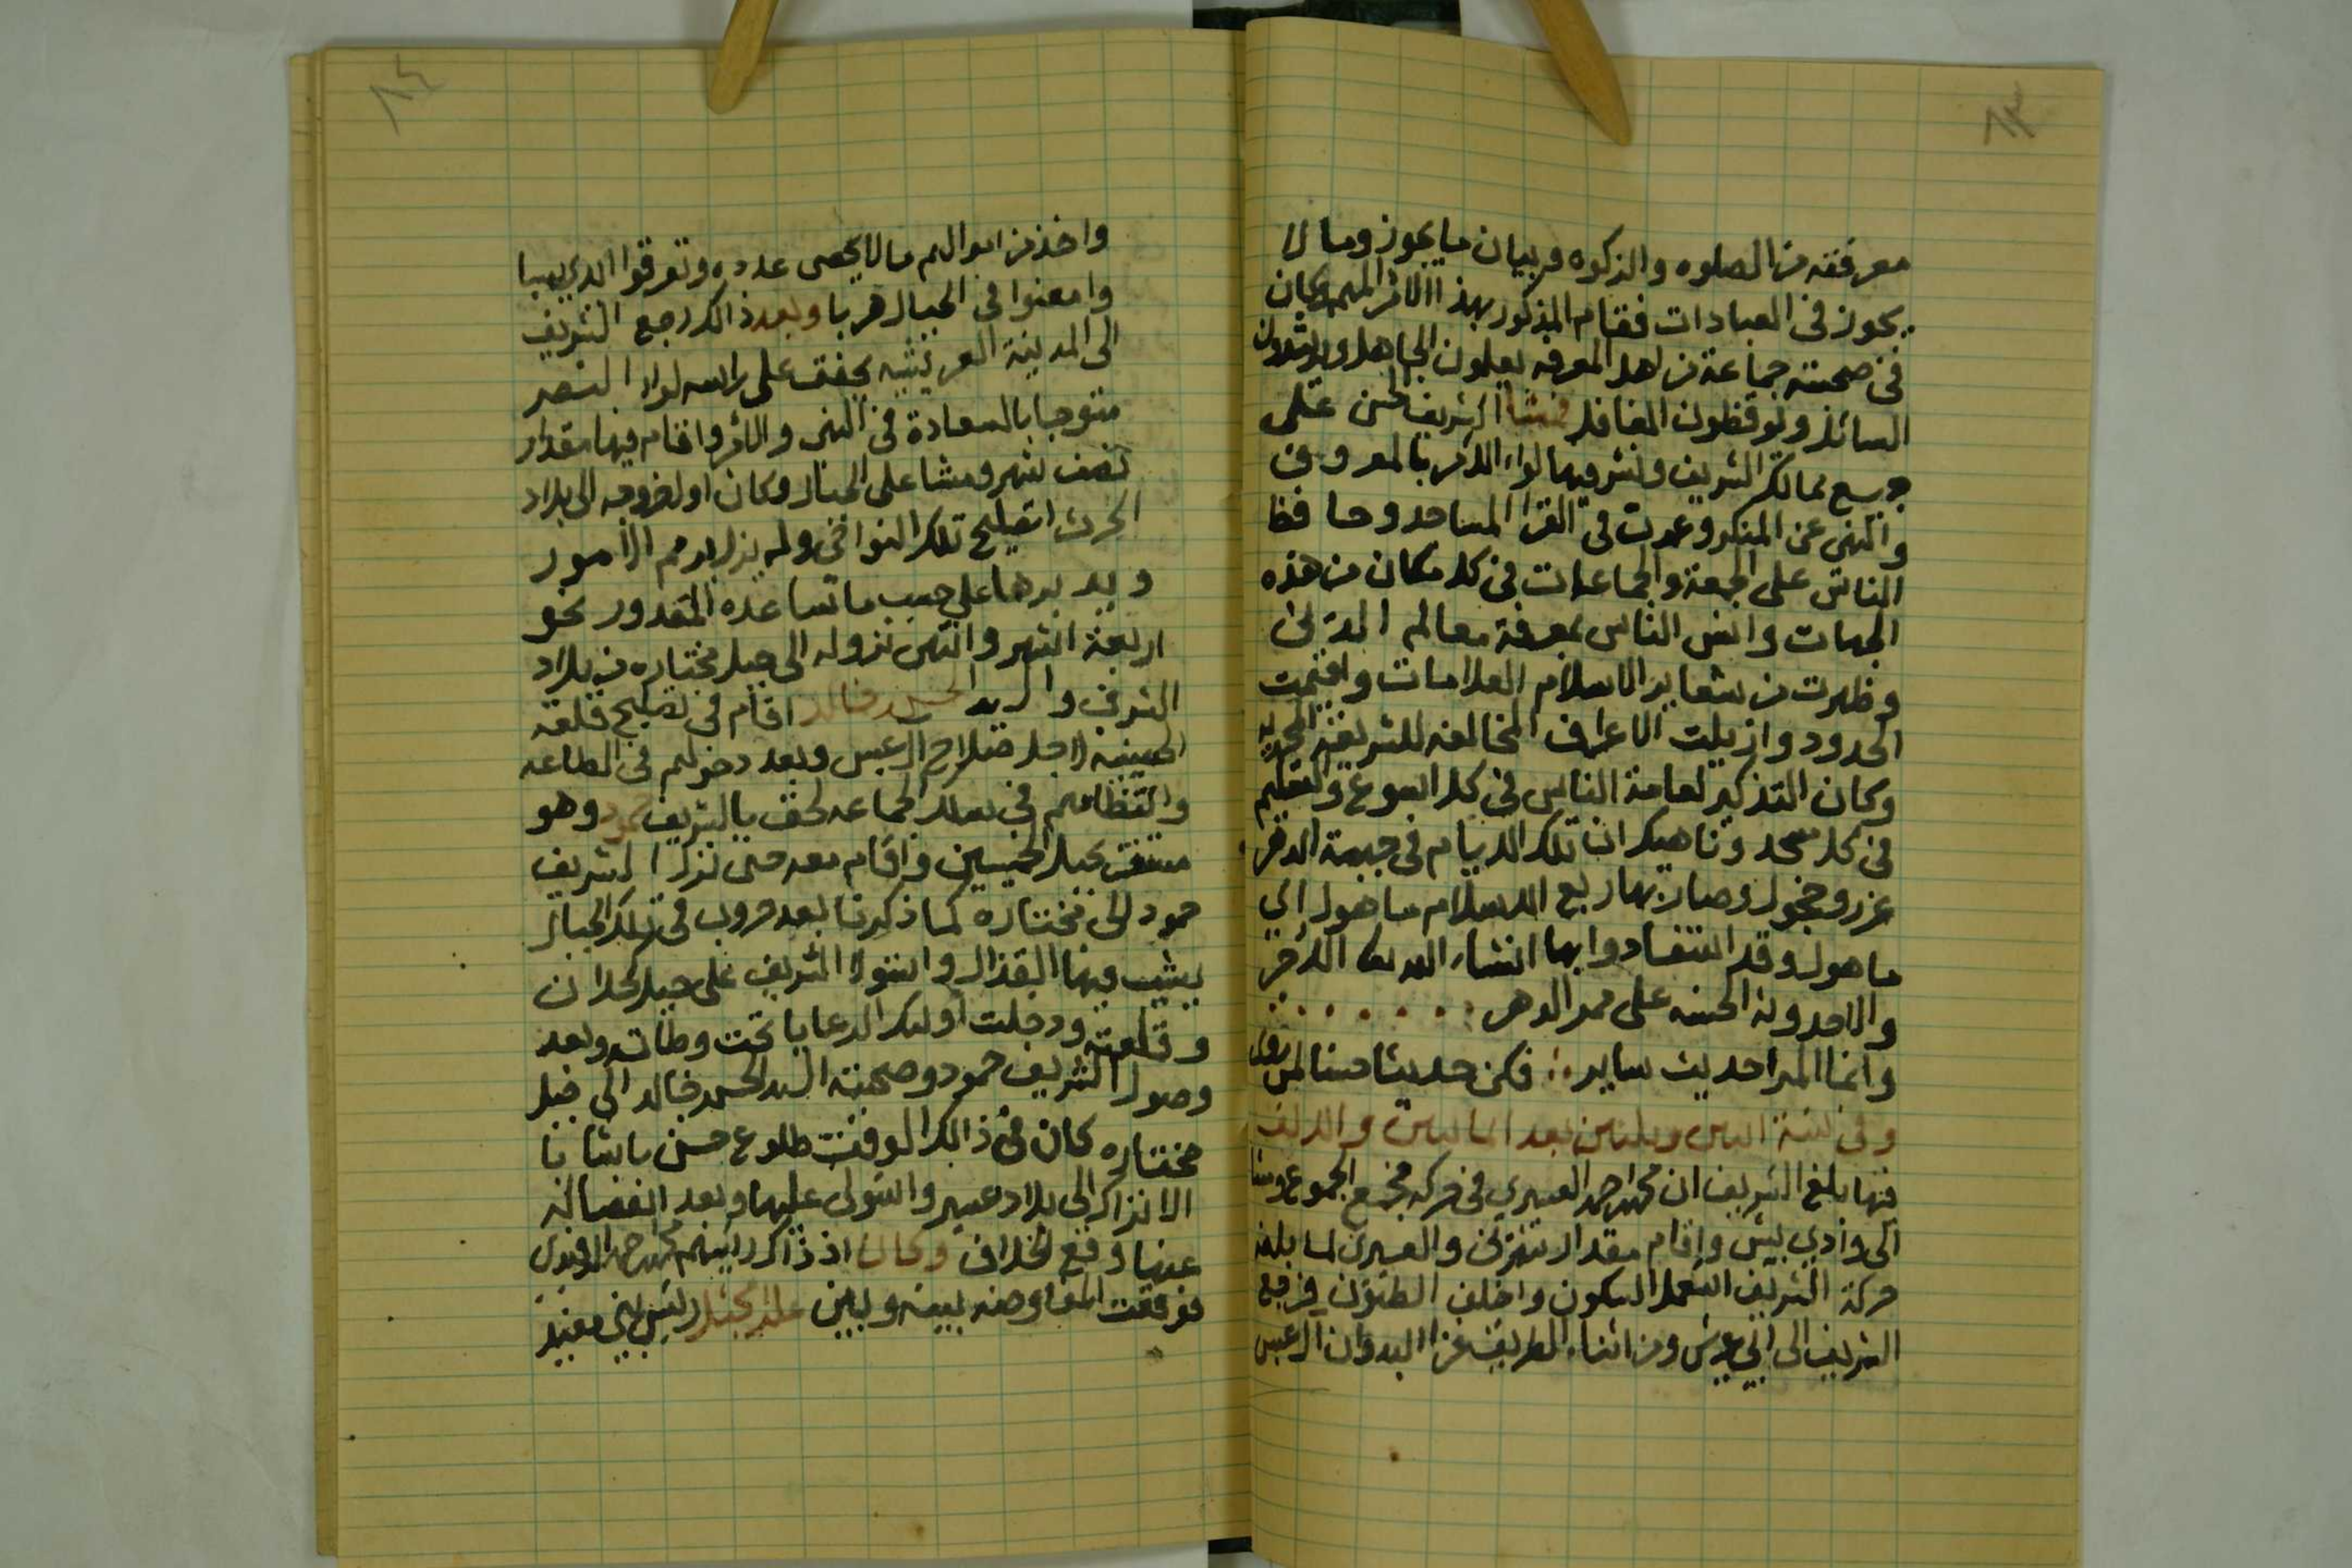 ٨٣
معرفته من الصلوه والزكوه وبيان ما يجوز وما لا
يجوز في العبادات فقام المذكور بهذا الامر المهم وكان
في صحبته جماعة من اهل المعرفه يعلمون الجاهل ويرشدون
السائل ويوقظون الغافل فمشا الشريف الحسن على
جميع ممالك الشريف ونشر فيها لواء الامر بالمعروف
والنهي عن المنكر وعمرت في القرا المساجد وحافظ
الناس على الجمعة والجماعات في كل مكان من هذه
الجهات وانس الناس بمعرفة معالم الدين
وظهرت من شعاير الاسلام العلامات واقيمت
الحدود وازيلت الاعراف المخالفه للشريفه المحمديه
وكان التذكير لعامة الناس في كل اسبوع والتعليم
في كل مسجد وناهيك ان تلك الايام في جبهة الدهر
غرر وحجول وصار بها ربع الاسلام ماهول اي
ماهول وقد استفادوا بها انشاء الله الاجر
والاحدوثة الحسنه على ممر الدهر
وانما المرا حديث ساير ∴ فكن حديثا حسنا لمن روى
وفي سنة اثنين وثلثين بعد المائتين والالف
فيها بلغ الشريف ان محمد احمد العسيري في حركه فجمع الجموع ومشا
الى وادي بيش واقام مقدار شهرين والعسيري لما بلغه
حركة الشريف استعمل السكون واخلف الظنون فرجع
الشريف الى ابي عريش ومن اثناء الطريق غزا البدوان ال عبس
٨٤
واخذ من اموالهم ما لا يحصى عدده وتفرقوا ايدي سبا
وامعنوا في الجبال هربا وبعد ذالك رجع الشريف
الى المدينة العريشيه يخفق على راسه لواء النصر
متوجا بالسعادة في النهي والامر واقام فيها مقدار
نصف شهر ومشا على الجبال وكان اول خروجه الى بلاد
الحرث لتصليح تلك النواحي ولم يزل يرمم الامور
ويدبرها على حسب ما تساعده المقدور نحو
اربعة اشهر وانتهى نزوله الى جبل مختاره من بلاد
الشرف والسيد الحسن خالد اقام في تصليح قلعة
الحسينيه لاجل صلاح ال عبس وبعد دخولهم في الطاعه
وانتظامهم في سلك الجماعه لحق بالشريف حمود وهو
مستقر بجبل الخميسين واقام معه حتى نزل الشريف
حمود الى مختاره كما ذكرنا بعد حروب في تلك الجبال
يشيب فيها القذال واستولا الشريف على جبل كحلان
وقلعته ودخلت اولئك الرعايا تحت وطاته وبعد
وصول الشريف حمود وصحبته السيد الحسن خالد الى جبل
مختاره كان في ذالك الوقت طلوع حسن باشا با
الانزاك الى بلاد عسير واستولى عليها وبعد انفصاله
عنها وقع الخلاف وكان اذ ذاك رئيسهم محمد احمد الرفيدي
فوقعت المفاوضه بينه وبين علي بن مجثل رئيس بني مغيد